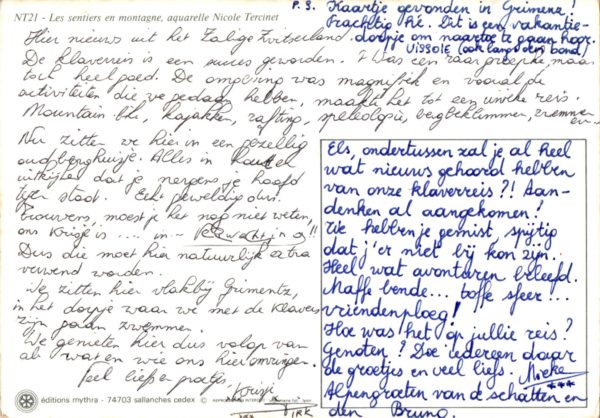 NT21 - Les sentiers en montagne, aquarelle Nicole Tercinet
P.S. Kaartje gevonden in Grimenz!
Prachtig hè. Dit is een vakantie-
dorpje om naartoe te gaan hoor.
VISSOIE (ook langs den bond)
Hier nieuws uit het Zalige Zwitserland.
De klaverreis is een succes geworden. 't Was een raar groepke, maar
toch heel goed. De omgeving was magnifiek en vooral de
activiteiten die we gedaan hebben, maakte het tot een unieke reis.
Mountain bike, kajakken, rafting, speleologie, bergbeklimmen, zwemmen
en...
Nu zitten we hier in een gezellig
oud berghuisje. Alles in hout en
uitkijken dat je nergens je hoofd
tegen stoot. Echt geweldig dus.
Trouwens, moest je het nog niet weten,
ons Krisje is ... in ... verwachting!!
Dus die moet hier natuurlijk extra
verwend worden.
We zitten hier vlakbij Grimentz,
in het dorpje waar we met de Klavers
zijn gaan zwemmen.
We genieten hier dus volop van
al wat en wie ons hier omringen.
Veel liefs en groetjes,
Krisje
DIRK
Els, ondertussen zal je al heel
wat nieuws gehoord hebben
van onze klaverreis?! Aan-
denken al aangekomen!
We hebben je gemist, spijtig
dat j'er niet bij kon zijn..
Heel wat avonturen beleefd.
Maffe bende... toffe sfeer...
vriendenploeg!
Hoe was het op jullie reis?
Genoten? Doe iedereen daar
de groetjes en veel liefs. Mieke
***
Alpengroeten van de schatten en
den Bruno.
éditions mythra - 74703 sallanches cedex